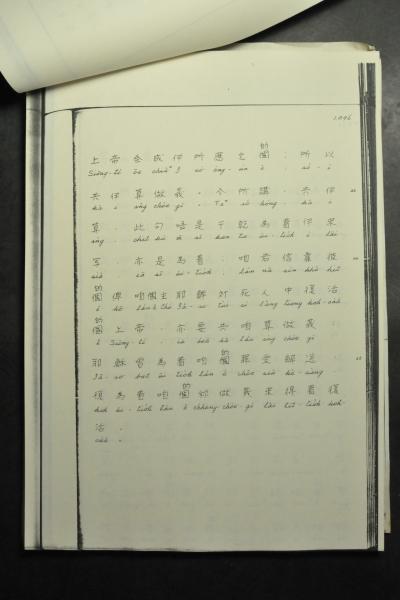 1046
上帝會成伊所應允的個；所以
Siōng-tè ōe chiâⁿ I só͘ èng-ún ê ; só͘-í
共伊算做義。今所講，共伊
kā i sǹg chòe gī. Taⁿ só͘ kóng, kā i
算，此句唔是干乾為着伊來
sǹg, chit kù m̄ sī kan-ta ūi-tio̍h i lâi
寫，亦是為着咱若信靠彼
siá, iā sī ūi-tio̍h lán nā sìn khò hit
的個俾咱個主耶穌對死人中復活
ê hō͘ lán ê Chú Iâ-so͘ tùi sí lâng tiong ho̍h-oa̍h
的個上帝，亦要共咱算做義。
ê Siōng-tè, iā beh kā lán sǹg chòe gī.
耶穌為着咱的個罪受解送，
Iâ-so͘ ūi-tio̍h lán ê chōe siū kè-sàng
復為着咱的個做義來得着復
koh ūi-tio̍h lán ê chòe gī lâi tit-tio̍h ho̍h-
活。
oa̍h.